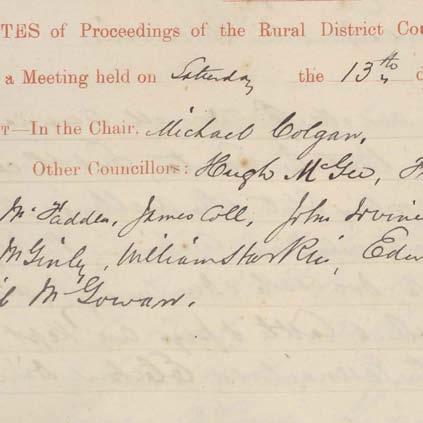 TES of Proceedings of the Rural District Cou
a Meeting held on Saturday the 13th d
T—In the Chair, Michael Colgan,
Other Councillors: Hugh McGee,
McFadden, James Coll, John Irvine
McGinly, William Starkie, Edw
McGowan.